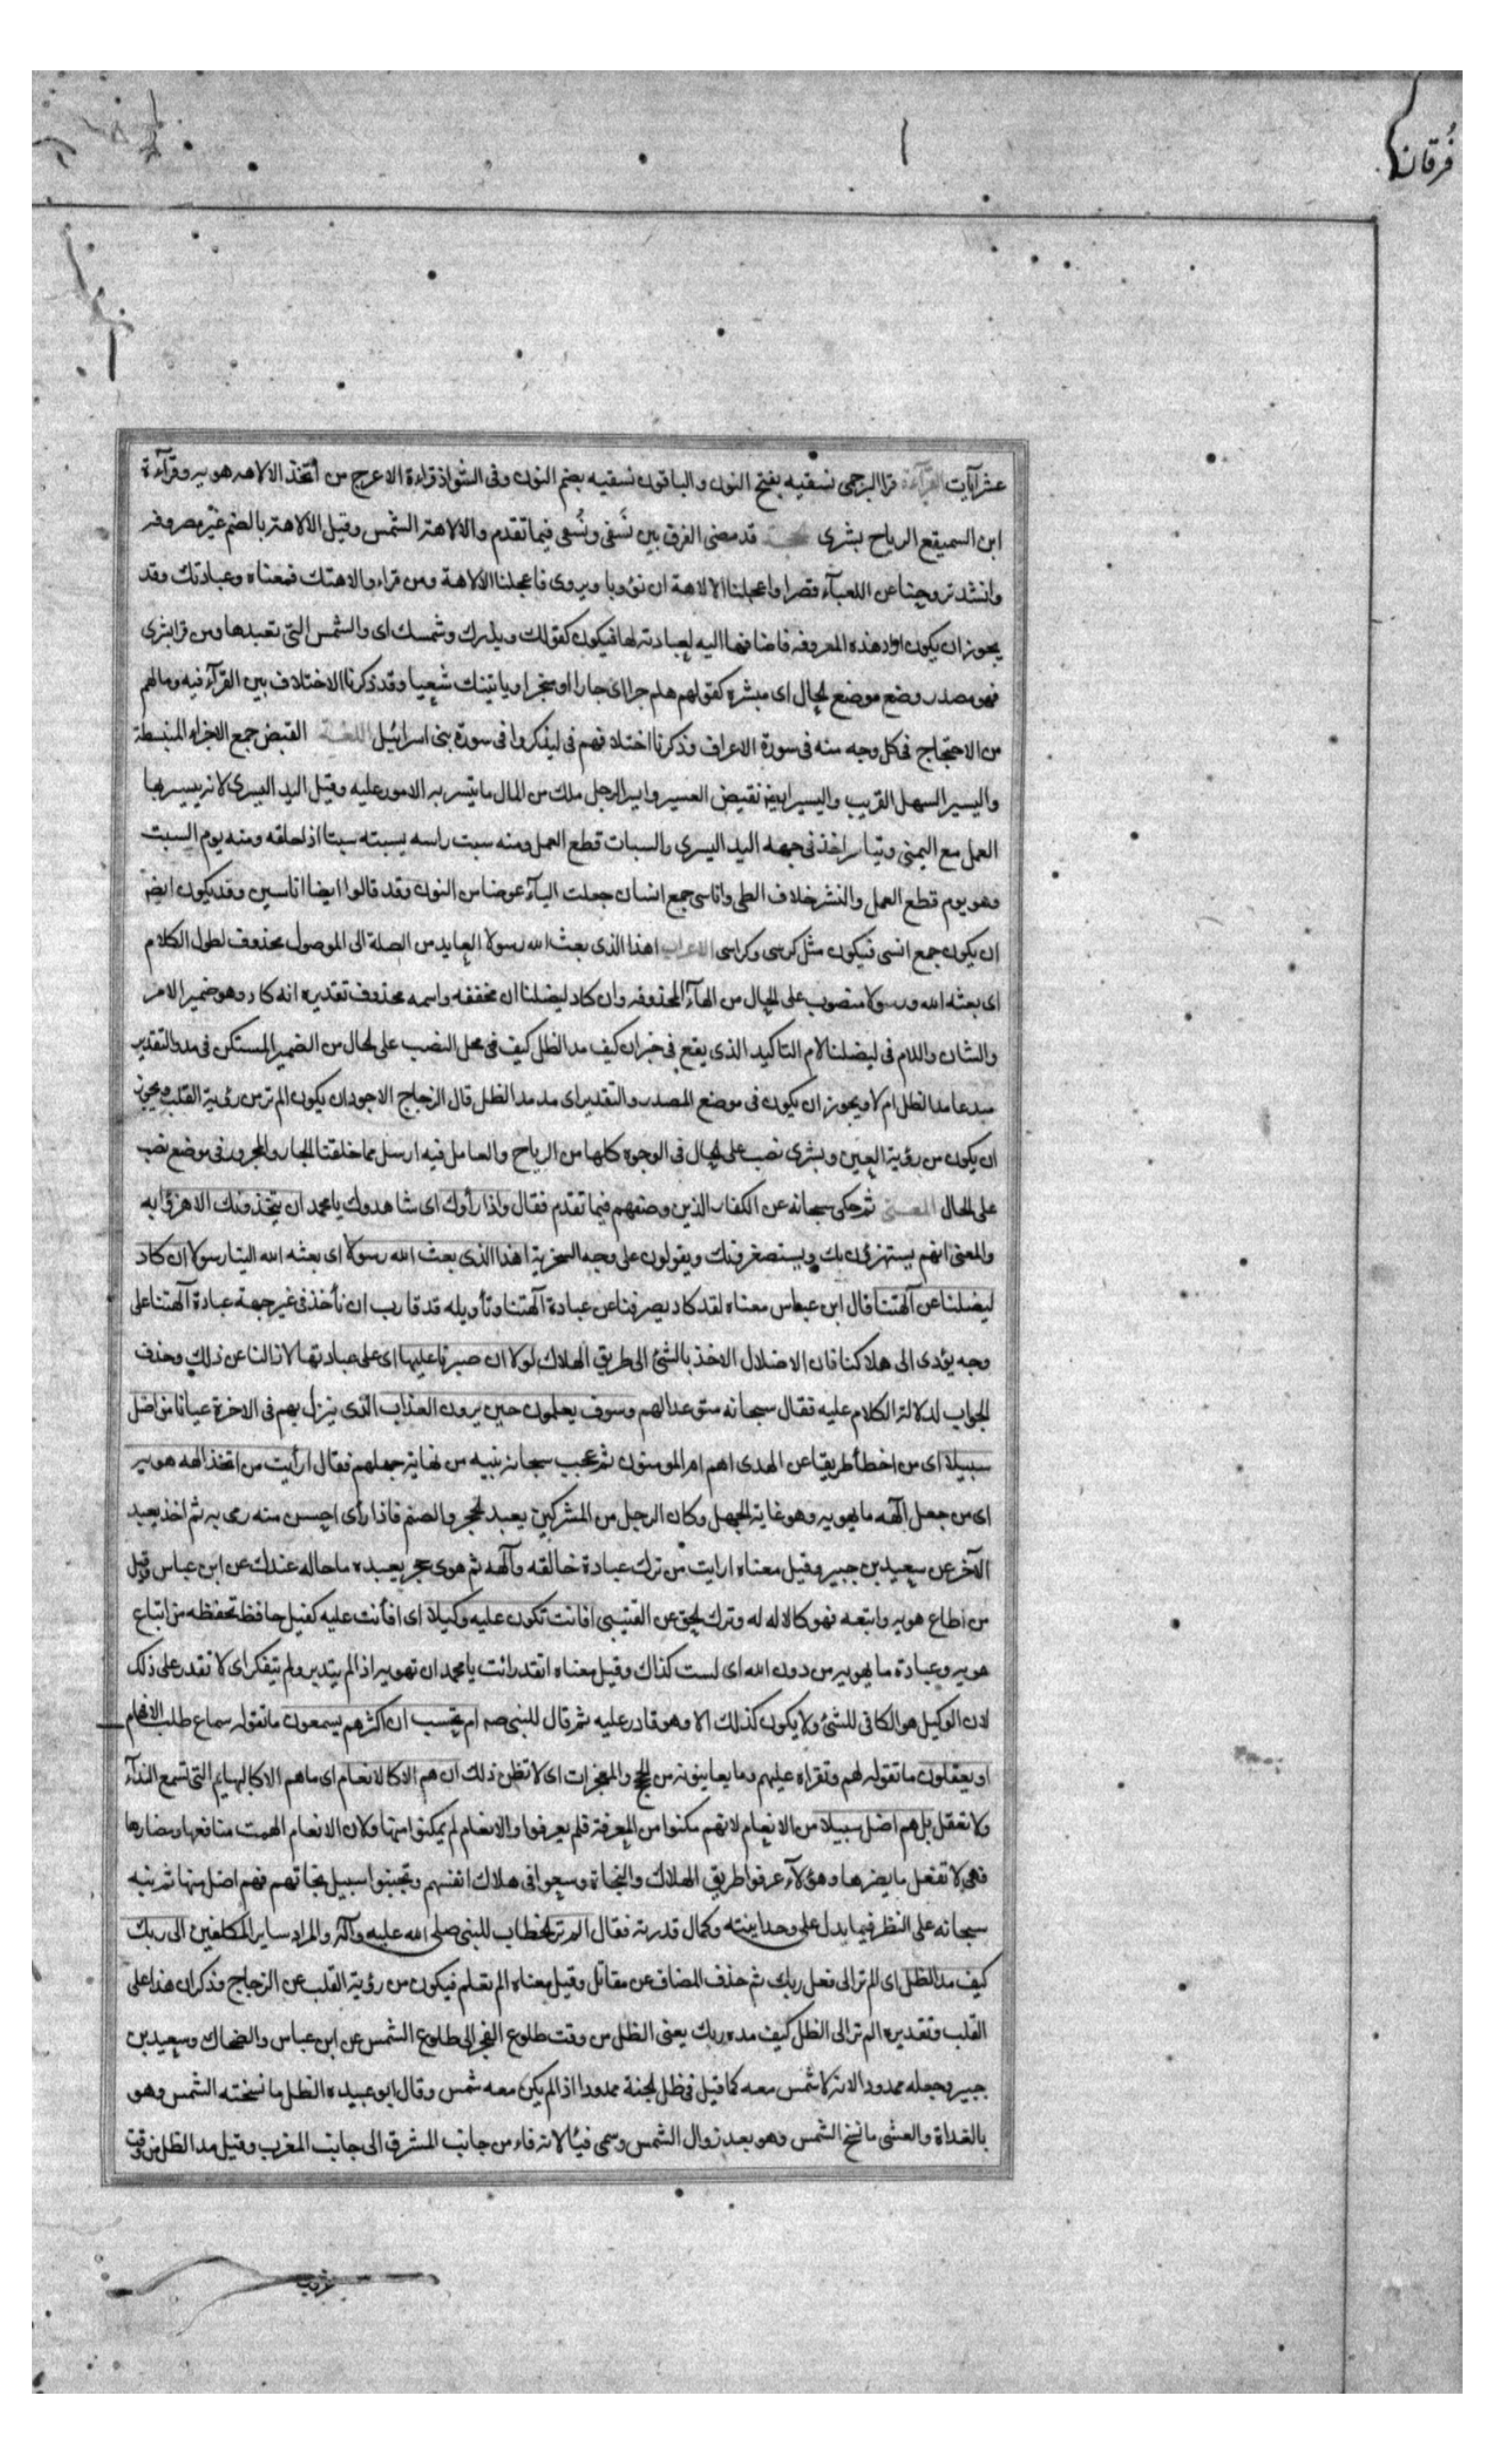 فُرقان
عشر آيات القرآءة قرا البرجمى نسقيه بفتح النون والباقون نسقيه بضم النون وفى الشواذ قراءة الاعرج من أتخذ الالاهه هويه وقرآءة
ابن السميقع الرياح بشرى الحجة قد مضى الفرق بين نَسقى ونُسقى فيما تقدم والالاهة الشمس وقيل الالاهة بالضم غير مصروفه
وانشد تروحينا عن اللعبآء قصرا واعجلنا الالاهة ان تؤوبا ويروى فاعجلنا الالاهة ومن قراء والاهتك فمعناه وعبادتك وقد
يجوز ان يكون اراد هذه المعروفه فاضافها اليه لعبادته لها فيكون كقولك ويذرك وشمسك اى والشمس التى تعبدها ومن قرا بشرى
فهو مصدر وضع موضع الحال اى مبشره كقولهم هلم جرا اى جارا او منجرا ويأتينك سعيا وقد ذكرنا الاختلاف بين القرآء فيه ومالهم
من الاحتجاج فى كل وجه منه فى سورة الاعراف وذكرنا اختلافهم فى ليذكروا فى سورة بنى اسرائيل اللغة القبض جمع الاجزاء المنبسطة
واليسير السهل القريب واليسير ايضا نقيض العسير وايسر الرجل ملك من المال ما يتسر به الامور عليه وقيل اليد اليسرى لانه يتيسر بها
العمل مع اليمنى وتياسر اخذ فى جهة اليد اليسرى والسبات قطع العمل ومنه سبت راسه يسبته سبتا اذا حلقه ومنه يوم السبت
وهو يوم قطع العمل والنشر خلاف الطى واناسى جمع انسان جعلت اليآء عوضا من النون وقد قالوا ايضا اناسين وقد يكون ايضا
ان يكون جمع انسى فيكون مثل كرسى وكراسى الاعراب اهذا الذى بعث الله رسولا العايد من الصلة الى الموصول محذوف لطول الكلام
اى بعثه الله ورسولا منصوب على الحال من الهآء المحذوفه وان كاد ليضلنا ان مخففه واسمه محذوف تقديره انه كاد وهو ضمير الامر
والشان واللام فى ليضلنا لام التاكيد الذى يقع فى خبر ان كيف مد الظل كيف فى محل النصب على الحال من الضمير المستكن فى مد والتقدير
مبدعا مد الظل ام لا ويجوز ان يكون فى موضع المصدر والتقدير اى مد مد الظل قال الزجاج الاجود ان يكون الم تر من رؤية القلب ويجوز
ان يكون من رؤية العين وبشرى نصب على الحال فى الوجوه كلها من الرياح والعامل فيه ارسل مما خلقنا الجار والمجرور فى موضع نصب
على الحال المعنى ثم حكى سبحانه عن الكفار الذين وصفهم فيما تقدم فقال واذا رأوك اى شاهدوك يا محمد ان يتخذونك الا هزؤا به
والمعنى انهم يستهزؤن بك ويستصغرونك ويقولون على وجه السخرية اهذا الذى بعث الله رسولا اى بعثه الله الينا رسولا ان كاد
ليضلنا عن آلهتنا قال ابن عباس معناه لقد كاد يصرفنا عن عبادة آلهتنا وتأويله قد قارب ان نأخذ فى غير جهة عبادة آلهتنا على
وجه يؤدى الى هلاكنا فان الاضلال الاخذ بالشئ الى طريق الهلاك لولا ان صبرنا عليها اى على عبادتها لازالنا عن ذلك وحذف
الجواب لدلالة الكلام عليه فقال سبحانه متوعدا لهم وسوف يعلمون حين يرون العذاب الذى ينزل بهم فى الاخرة عيانا من اضل
سبيلا اى من اخطأ طريقا عن الهدى اهم ام المومنون ثم عجب سبحانه نبيه من نهاية جهلهم فقال ارأيت من اتخذ الهه هويه
اى من جعل آلهه ما يهويه وهو غاية الجهل وكان الرجل من المشركين يعبد الحجر والصنم فاذا رأى احسن منه رمى به ثم اخذ يعبد
الآخر عن سعيد بن جبير وقيل معناه ارايت من ترك عبادة خالقه وآلهه ثم هوى حجر يعبده ما حاله عندك عن ابن عباس وقيل
من اطاع هويه واتبعه فهو كالاله له وترك الحق عن القتيبى افانت تكون عليه وكيلا اى افأنت عليه كفيل حافظ تحفظه من اتباع
هويه وعبادة ما يهويه من دون الله اى لست كذاك وقيل معناه اتقدر انت يا محمد ان تهويه اذا لم يتدبر ولم يتفكر اى لا تقدر على ذلك
لان الوكيل هو الكافى للشئ ولا يكون كذلك الا وهو قادر عليه ثم قال للنبى صه ام تحسب ان اكثرهم يسمعون ما تقوله سماع طلب الافهام
او يعقلون ما تقوله لهم وتقراه عليهم وما يعاينونه من الحجج والمعجزات اى لا تظن ذلك ان هم الا كالانعام اى ما هم الا كالبهايم التى تسمع الندآء
ولا تعقل بل هم اضل سبيلا من الانعام لانهم مكنوا من المعرفة فلم يعرفوا والانعام لم يمكنوا منها ولان الانعام الهمت منافعها ومضارها
فهى لا تفعل ما يضرها وهؤلآء عرفوا طريق الهلاك والنجاة وسعوا فى هلاك انفسهم وتجنبوا سبيل نجاتهم فهم اضل منها ثم نبه
سبحانه على النظر فيما يدل على وحدانيته وكمال قدرته فقال الم تر الخطاب للنبى صلى الله عليه وآله والمراد ساير المكلفين الى ربك
كيف مد الظل اى الم تر الى فعل ربك ثم حذف المضاف عن مقاتل وقيل معناه الم تعلم فيكون من رؤية القلب عن الزجاج وذكر ان هذا على
القلب وتقديره الم تر الى الظل كيف مده ربك يعنى الظل من وقت طلوع الفجر الى طلوع الشمس عن ابن عباس والضحاك وسعيد بن
جبير وجعله ممدودا لانه لا شمس معه كما قيل فى ظل الجنة ممدودا اذ لم يكن معه شمس وقال ابو عبيده الظل ما نسخته الشمس وهو
بالغداة والعشى ما نسخ الشمس وهو بعد زوال الشمس وسمى فيئا لانه فاء من جانب المشرق الى جانب المغرب وقيل مد الظل من وقت